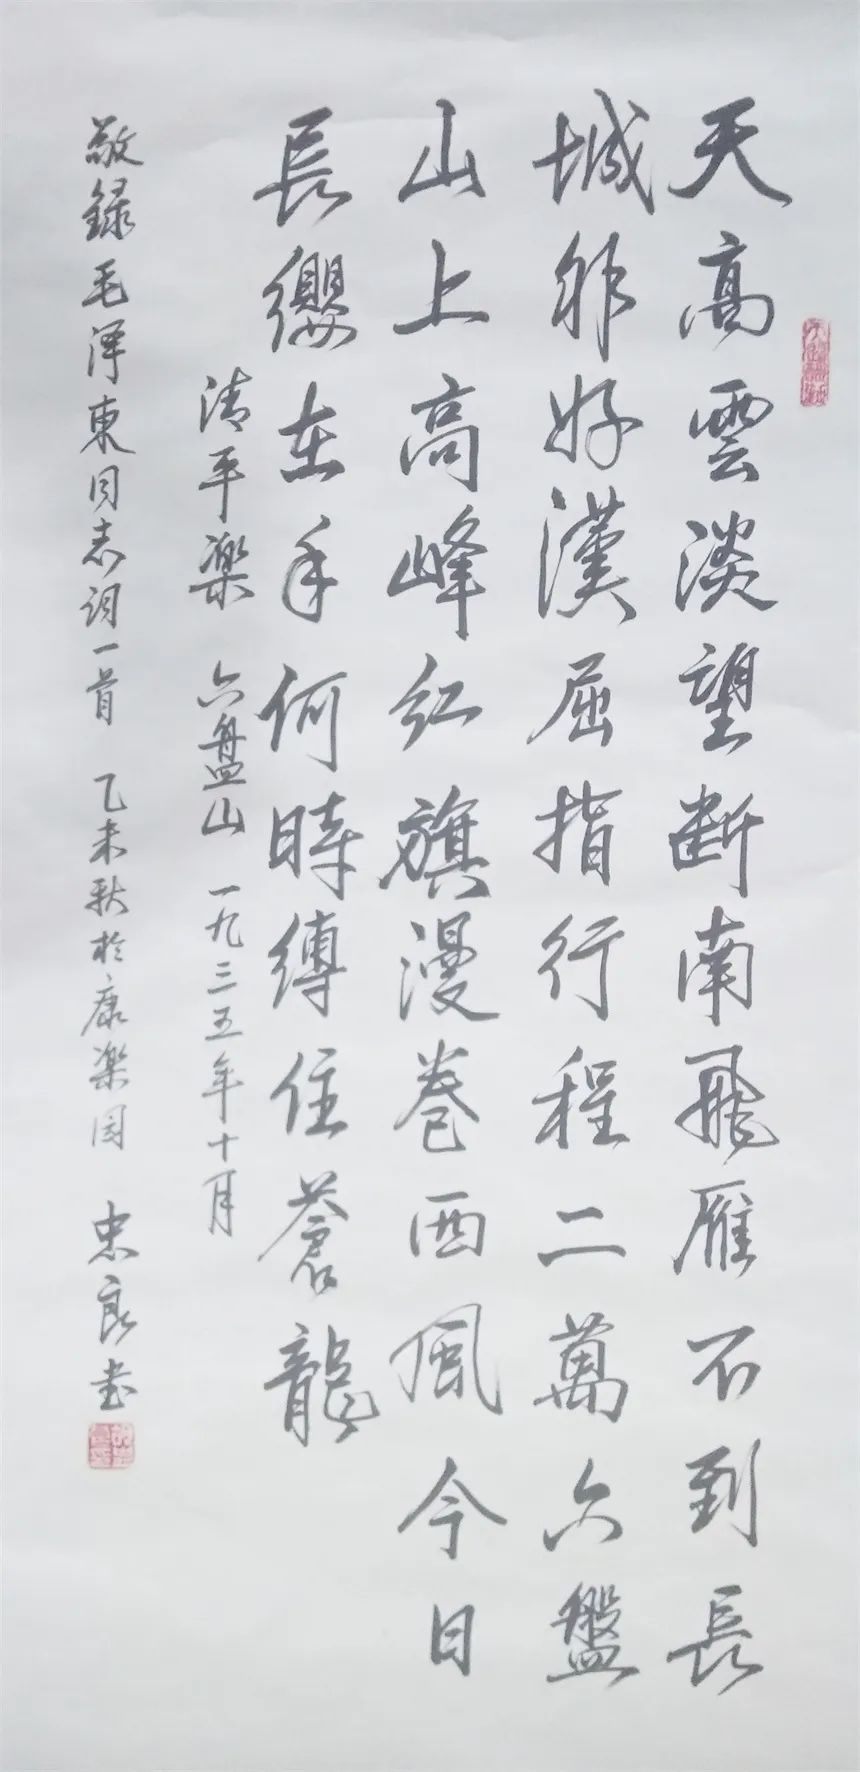 天高雲淡望断南飛雁不到長
城非好漢屈指行程二萬六盤
山上高峰红旗漫卷西風今日
長纓在手何時縛住蒼龍
清平樂 六盤山 一九三五年十月
敬録毛泽東同志词一首 乙未秋於康樂园 忠良书